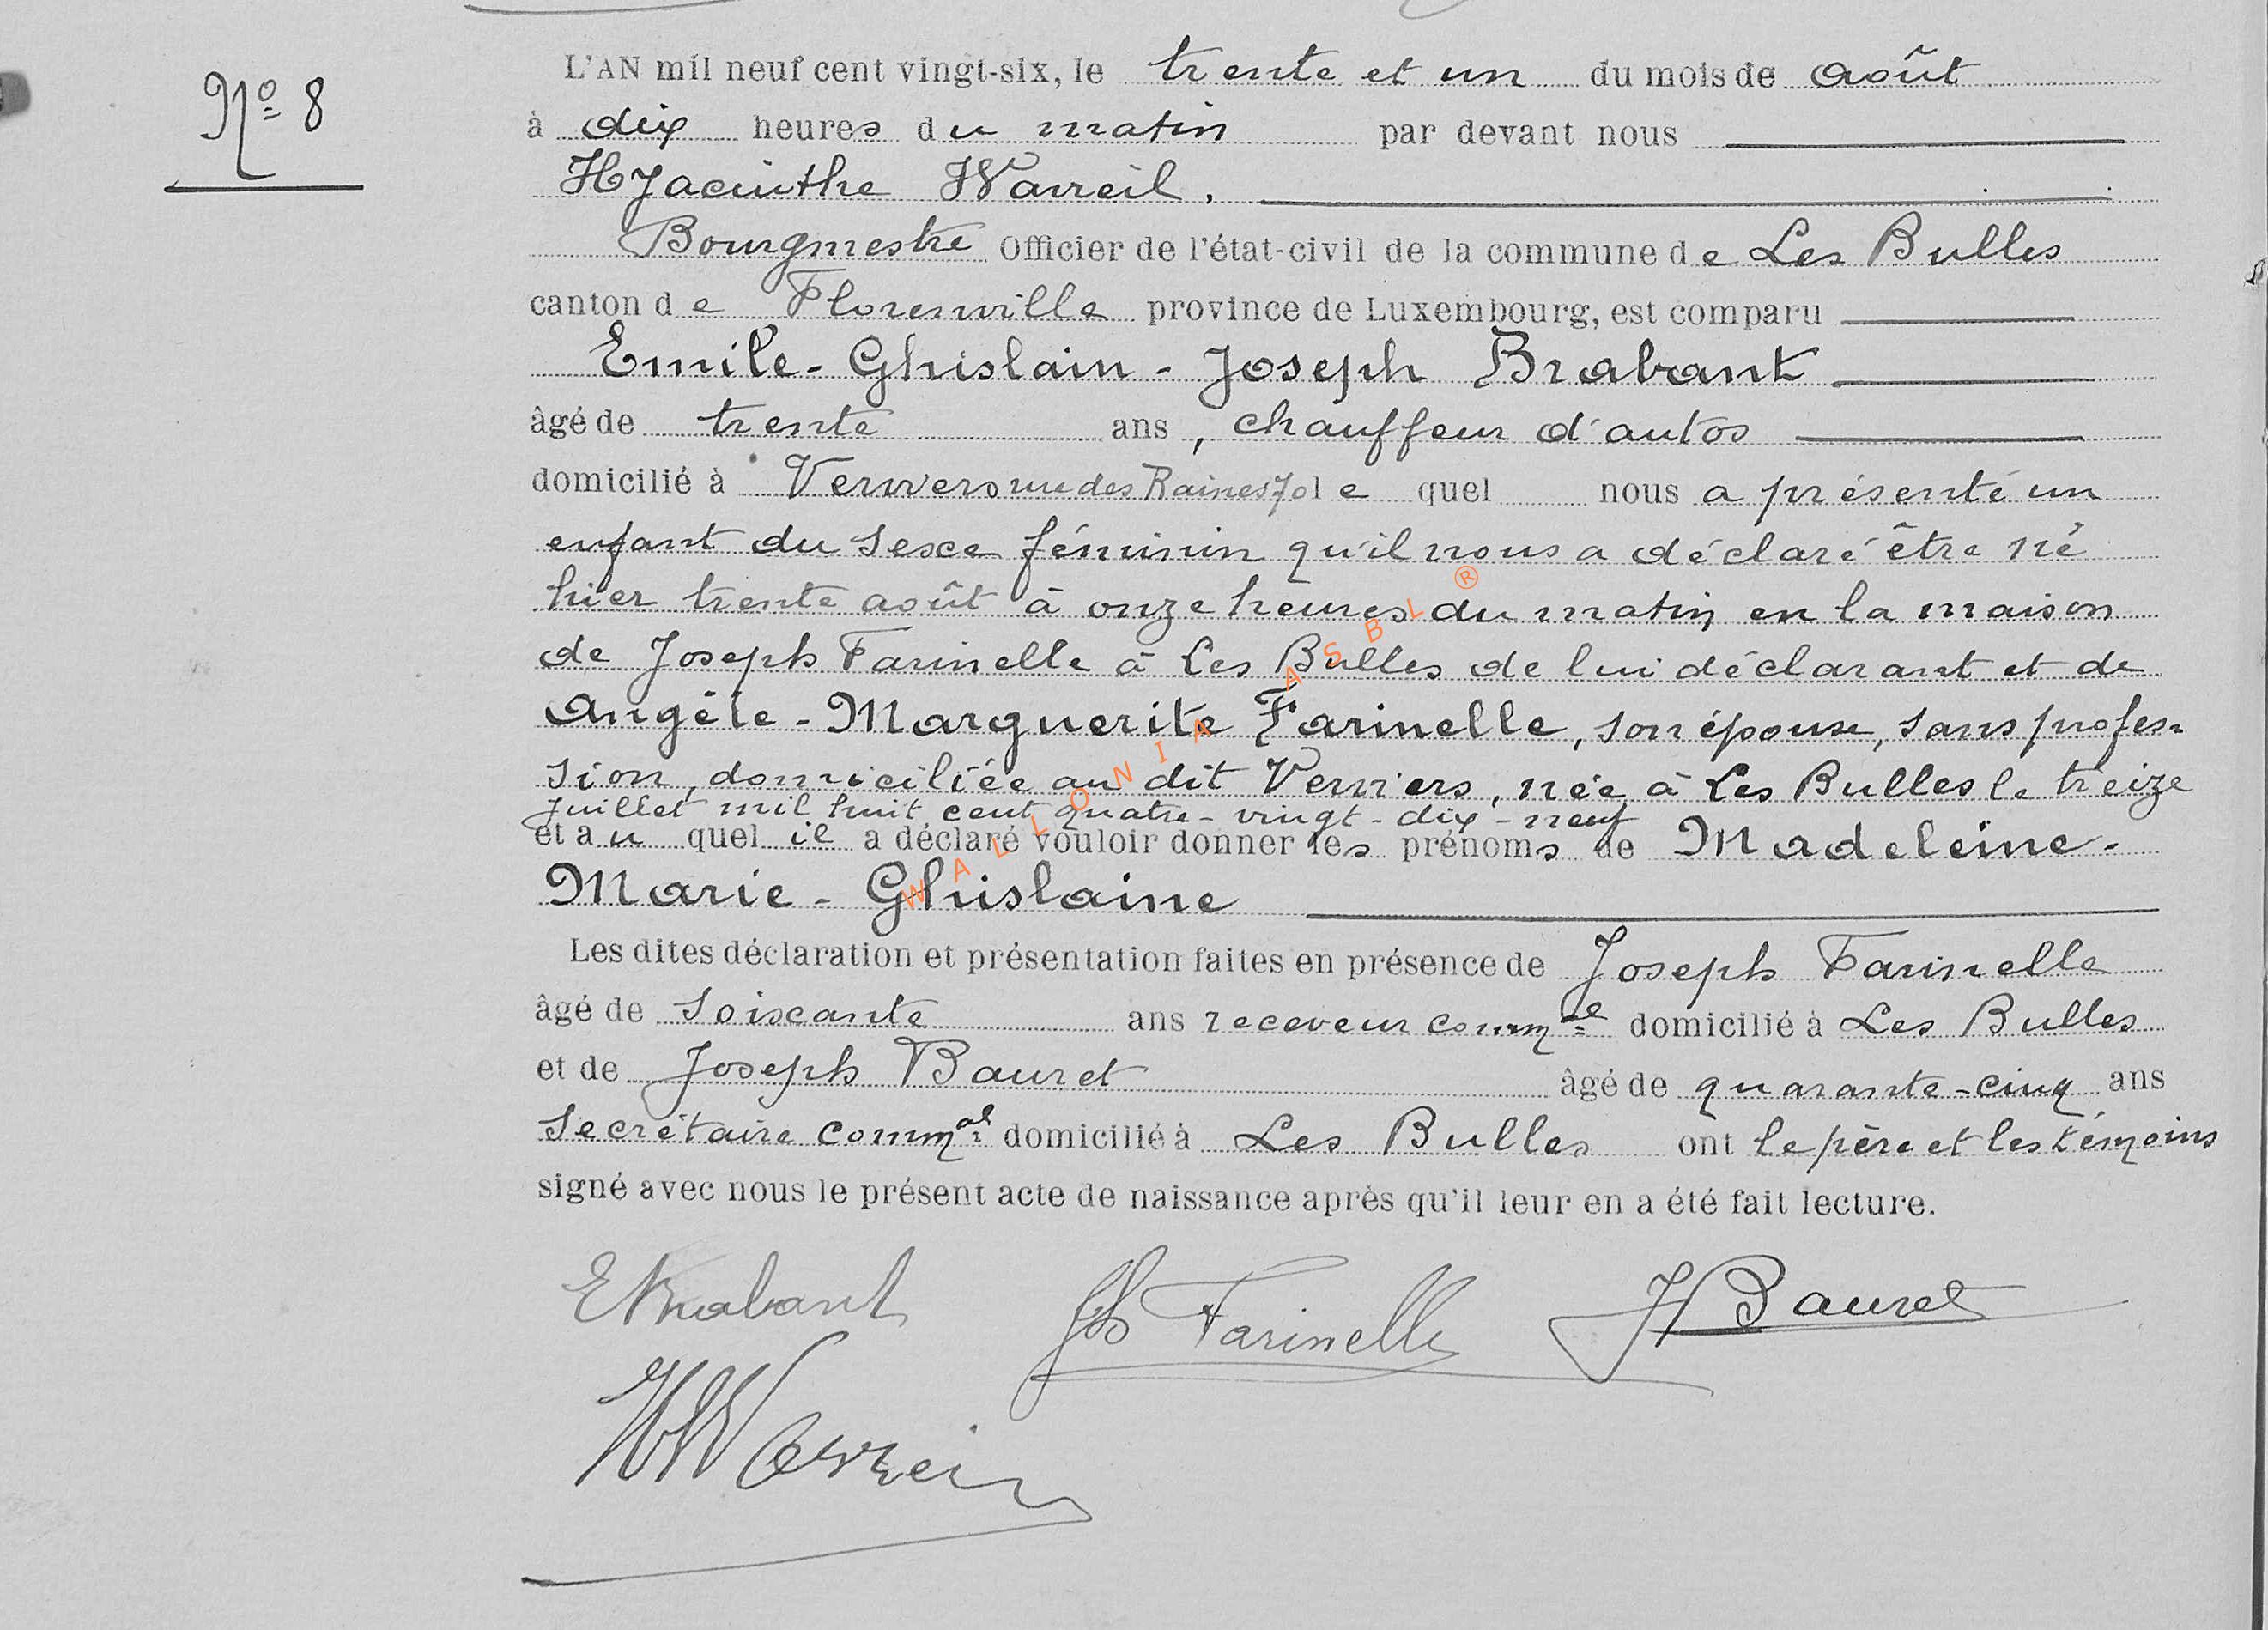 N° 8
L'AN mil neuf cent vingt-six, le trente et un du mois de août
à dix heures du matin par devant nous
Hyacinthe Warreil.
Bourgmestre Officier de l'état-civil de la commune de Les Bulles
canton de Florenville province de Luxembourg, est comparu
Emile-Ghislain-Joseph Brabant
âgé de trente ans, chauffeur d'autos
domicilié à Verviers rue des Raines 70 lequel nous a présenté un
enfant du sexe féminin qu'il nous a déclaré être né
hier trente août à onze heures du matin en la maison
de Joseph Farinelle à Les Bulles de lui déclarant et de
Angèle-Marguerite Farinelle, son épouse, sans profes=
sion, domiciliée au dit Verviers, née à Les Bulles le treize
juillet mil huit cent quatre-vingt-dix-neuf
et au quel il a déclaré vouloir donner les prénoms de Madeleine-
Marie-Ghislaine
Les dites déclaration et présentation faites en présence de Joseph Farinelle
âgé de soixante ans receveur comm.al domicilié à Les Bulles
et de Joseph Bauret âgé de quarante-cinq ans
secrétaire comm.al domicilié à Les Bulles ont le père et les témoins
signé avec nous le présent acte de naissance après qu'il leur en a été fait lecture.
EBrabant Jh Farinelle JBauret
HWarreil
WALLONIA ASBL ®